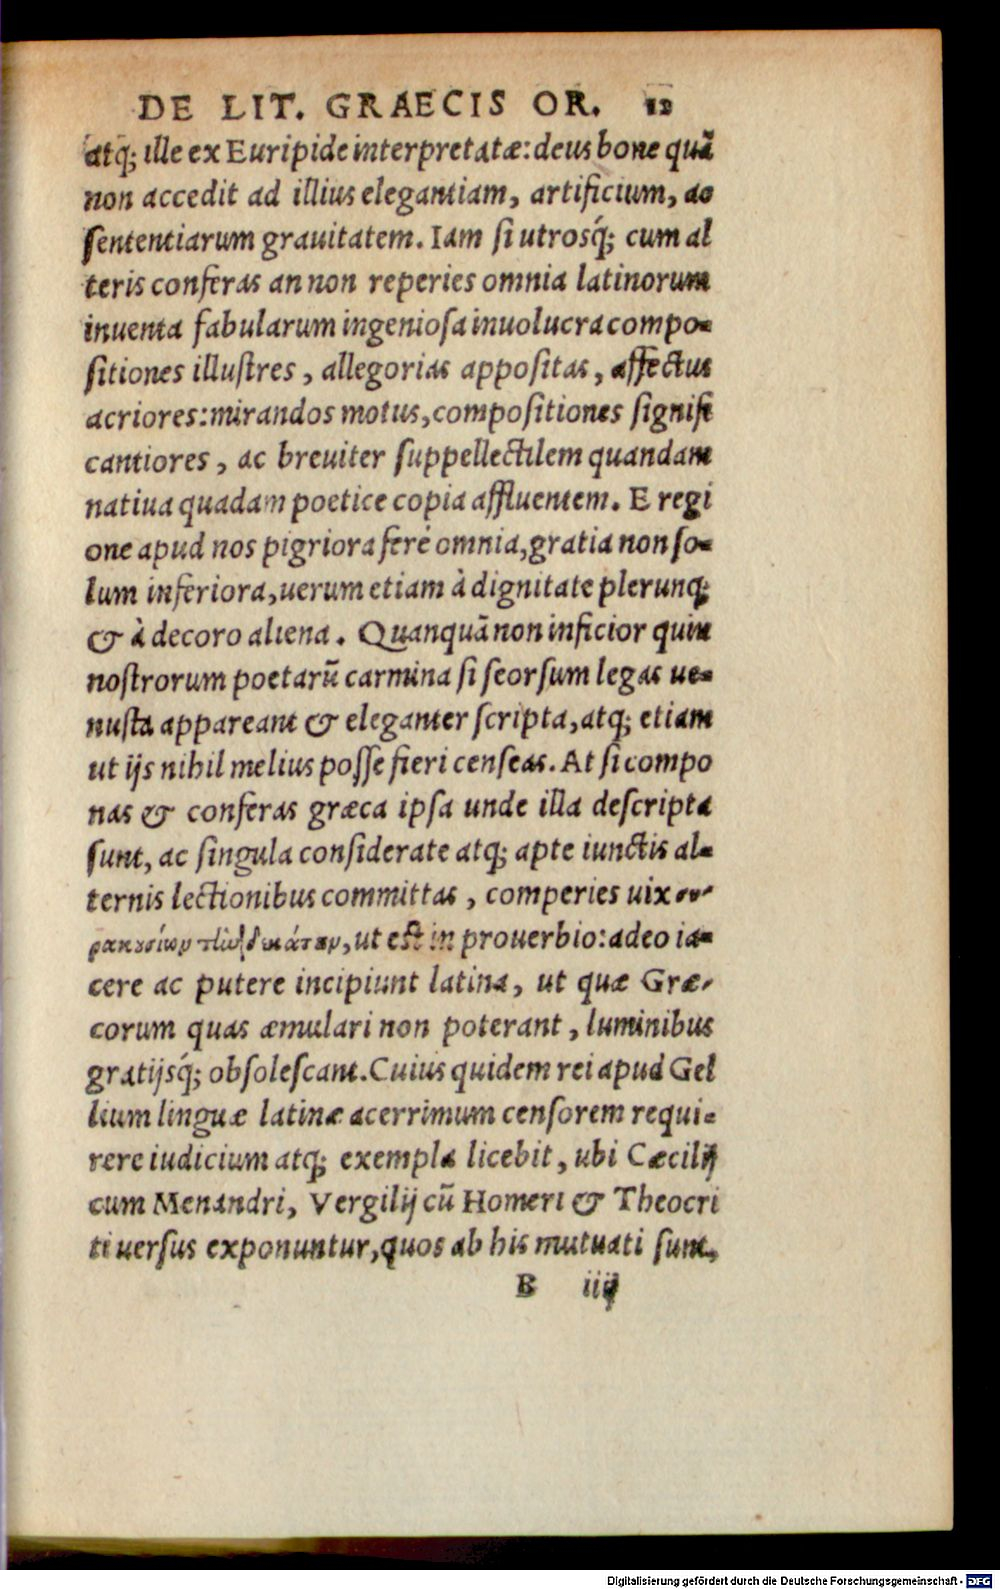 DE LIT. GRAECIS OR. 12
atq́; ille ex Euripide interpretatæ: deus bone quã
non accedit ad illius elegantiam, artificium, ac
sententiarum grauitatem. Iam si utrosq́; cum al
teris conferas an non reperies omnia latinorum
inuenta fabularum ingeniosa inuolucra compo-
sitiones illustres, allegorias appositas, affectus
acriores: mirandos motus, compositiones signifi
cantiores, ac breuiter suppellectilem quandam
natiua quadam poetice copia affluentem. E regi
one apud nos pigriora ferè omnia, gratia non so-
lum inferiora, uerum etiam à dignitate plerunq;
& à decoro aliena. Quanquã non inficior quin
nostrorum poetarũ carmina si seorsum legas ue-
nusta appareant & eleganter scripta, atq; etiam
ut ijs nihil melius posse fieri censeas. At si compo
nas & conferas græca ipsa unde illa descripta
sunt, ac singula considerate atq; apte iunctis al-
ternis lectionibus committas, comperies uix συ-
ρακουσίων τὴν δεκάτην, ut est in prouerbio: adeo ia-
cere ac putere incipiunt latina, ut quæ Græ-
corum quas æmulari non poterant, luminibus
gratijsq́; obsolescant. Cuius quidem rei apud Gel
lium linguæ latinæ acerrimum censorem requi-
rere iudicium atq; exempla licebit, ubi Cæcilij
cum Menandri, Vergilij cũ Homeri & Theocri
ti uersus exponuntur, quos ab his mutuati sunt,
B iiij
Digitalisierung gefördert durch die Deutsche Forschungsgemeinschaft - DFG